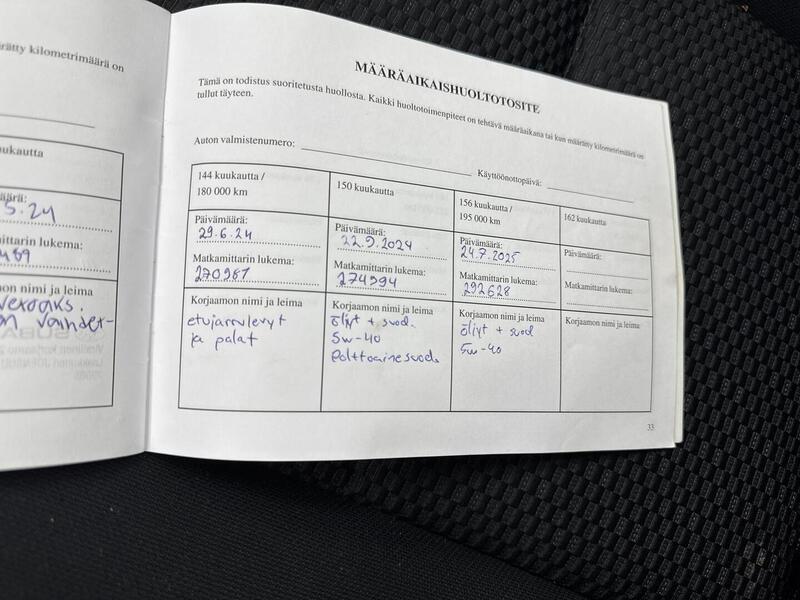 ärätty kilometrimäärä on
ukautta
äärä:
5.24
mittarin lukema:
489
on nimi ja leima
MÄÄRÄAIKAISHUOLTOTOSITE
Tämä on todistus suoritetusta huollosta. Kaikki huoltotoimenpiteet on tehtävä määräaikana tai kun määrätty kilometrimäärä on
tullut täyteen.
Auton valmistenumero:
Käyttöönottopäivä:
144 kuukautta /
180 000 km
Päivämäärä:
29.6.24
Matkamittarin lukema:
270981
Korjaamon nimi ja leima
etujarrulevyt
ja palat
150 kuukautta
Päivämäärä:
22.9.2024
Matkamittarin lukema:
274994
Korjaamon nimi ja leima
öljyt + suod.
5w-40
Polttoainesuod.
156 kuukautta /
195 000 km
Päivämäärä:
24.7.2025
Matkamittarin lukema:
292628
Korjaamon nimi ja leima
öljyt + suod
5w-40
162 kuukautta
Päivämäärä:
Matkamittarin lukema:
Korjaamon nimi ja leima
33